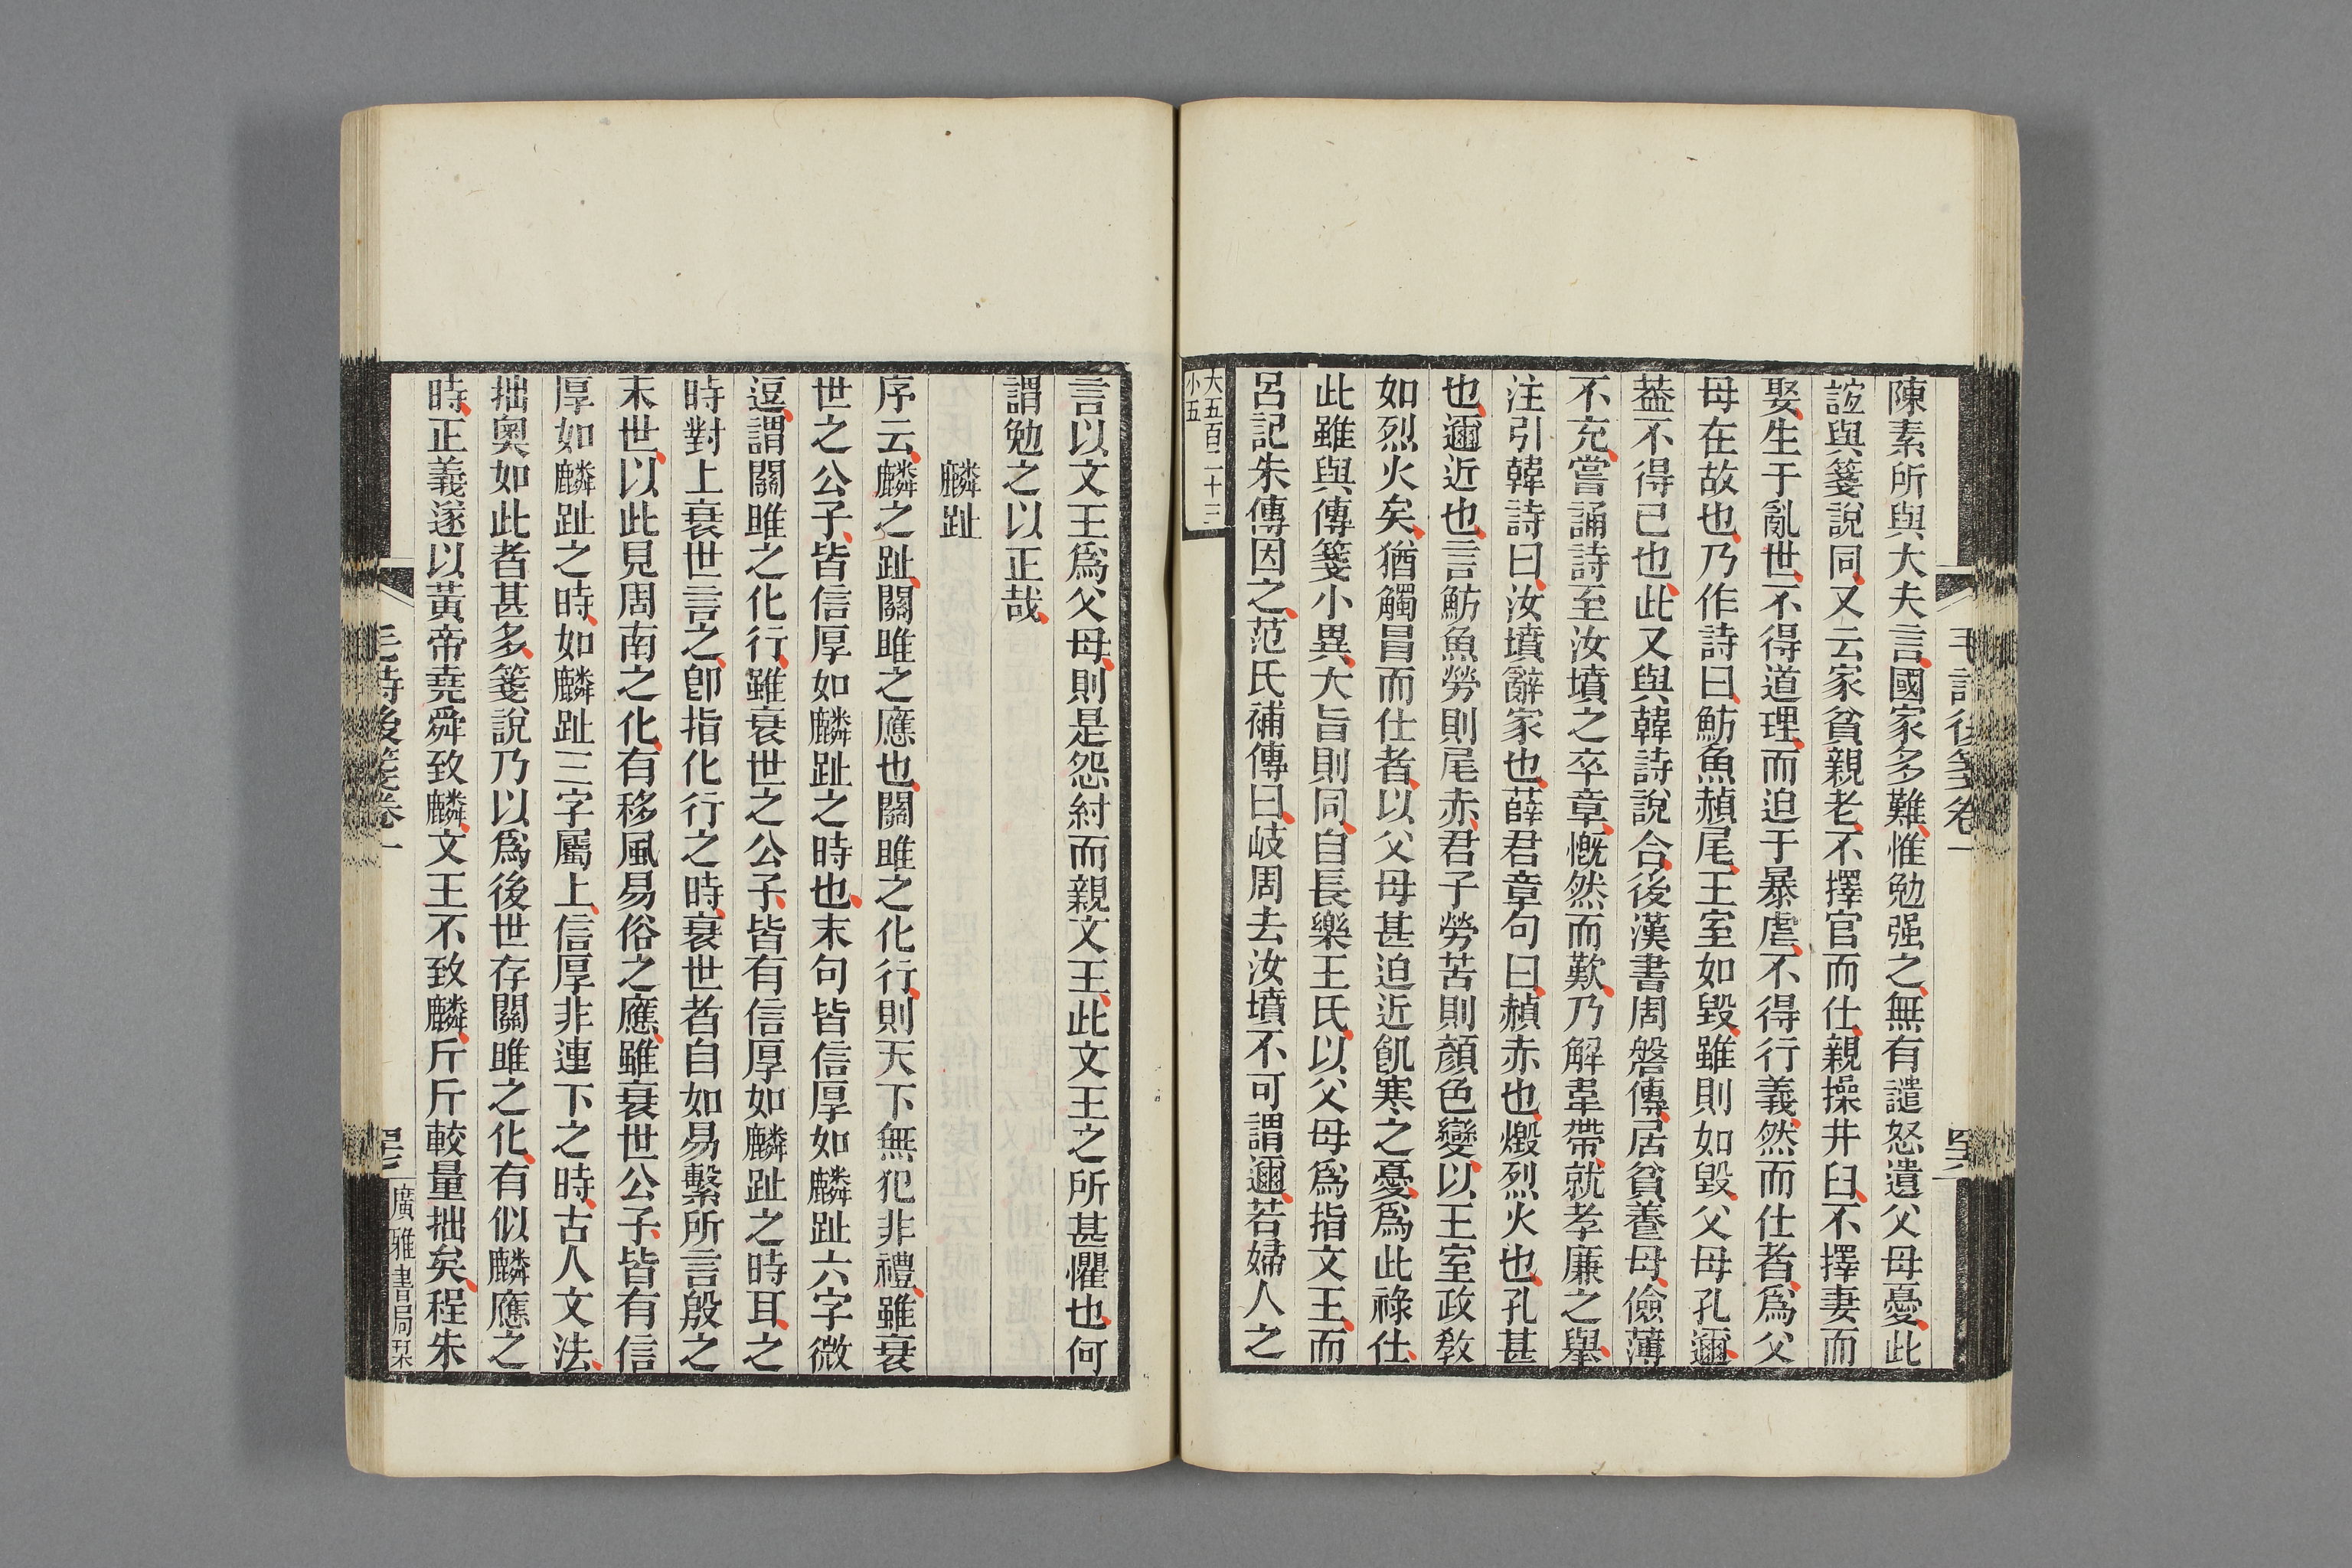 陳素所與大夫言國家多難惟勉强之無有譴怒遺父母憂此
誼與箋說同又云家貧親老不擇官而仕親操井臼不擇妻而
娶生于亂世不得道理而迫于暴虐不得行義然而仕者爲父
母在故也乃作詩曰魴魚赬尾王室如毀雖則如毀父母孔邇
葢不得已也此又與韓詩說合後漢書周磐傳居貧養母儉薄
不充嘗誦詩至汝墳之卒章慨然而歎乃解韋帶就孝廉之舉
注引韓詩曰汝墳辭家也薛君章句曰赬赤也燬烈火也孔甚
也邇近也言魴魚勞則尾赤君子勞苦則顏色變以王室政敎
如烈火矣猶觸冒而仕者以父母甚迫近飢寒之憂爲此祿仕
此雖與傳箋小異大旨則同自長樂王氏以父母爲指文王而
呂記朱傳因之范氏補傳曰岐周去汝墳不可謂邇若婦人之
大五百二十三
小五
毛詩後箋卷一
言以文王爲父母則是怨紂而親文王此文王之所甚懼也何
謂勉之以正哉
麟趾
序云麟之趾關雎之應也關雎之化行則天下無犯非禮雖衰
世之公子皆信厚如麟趾之時也末句皆信厚如麟趾六字微
逗謂關雎之化行雖衰世之公子皆有信厚如麟趾之時耳之
時對上衰世言之卽指化行之時衰世者自如易繫所言殷之
末世以此見周南之化有移風易俗之應雖衰世公子皆有信
厚如麟趾之時如麟趾三字屬上信厚非連下之時古人文法
拙奧如此者甚多箋說乃以爲後世存關雎之化有似麟應之
時正義遂以黃帝堯舜致麟文王不致麟斤斤較量拙矣程朱
毛詩後箋卷一
廣雅書局栞